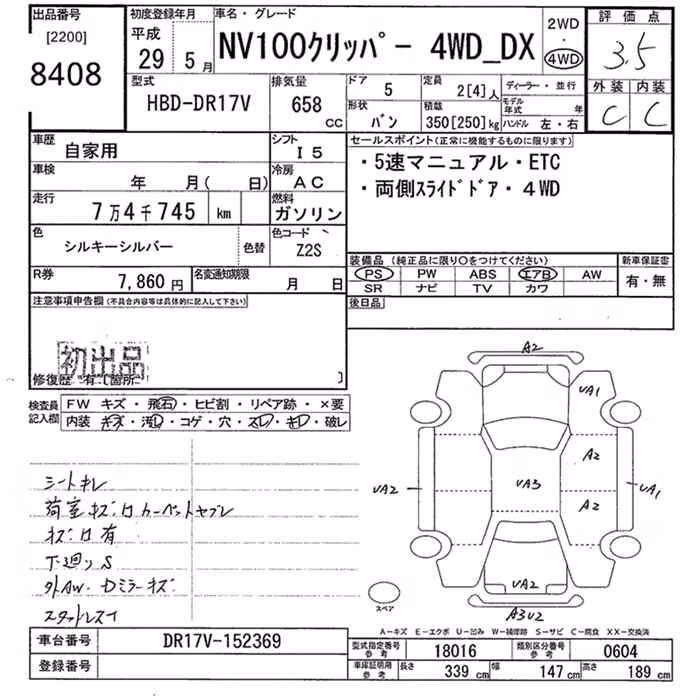 出品番号
[2200]
8408
初度登録年月
平成
29年 5月
車名・グレード
NV100クリッパー 4WD_DX
2WD
・
4WD
評価点
3.5
外装 内装
C C
型式
HBD-DR17V
排気量
658
CC
ドア
5
形状
バン
定員
2[4]人
積載
350[250]kg
ディーラー・並行
モデル年式 年
ハンドル 左・右
車歴
自家用
シフト
I 5
車検
年 月( 日)
冷房
AC
走行
7万4千745 km
燃料
ガソリン
色
シルキーシルバー
色替
色コード
Z2S
R券
7,860円
名変通知期限
月 日
セールスポイント(正常に機能するものに限ります)
・5速マニュアル・ETC
・両側スライドドア・4WD
装備品(純正品に限り○をつけてください)
PS PW ABS エアB AW
SR ナビ TV カワ
新車保証書
有・無
後日品
注意事項申告欄(不具合内容等は具体的に記入して下さい)
初出品
修復歴 有[箇所 ]
検査員記入欄
FW キズ・飛石・ヒビ割・リペア跡・×要
内装 キズ・汚レ・コゲ・穴・スレ・キレ・破レ
シートキレ
荷室キズ凹カーペットヤブレ
キズ凹有
下廻りS
外AW・Dミラーキズ
スタッドレス
A2
UA1
A2
UA2
UA3
UA1
A2
UA2
A3U2
スペア
A-キズ E-エクボ U-凹み W-補修跡 S-サビ C-腐食 XX-交換済
車台番号
DR17V-152369
登録番号
型式指定番号
参考
18016
類別区分番号
参考
0604
車庫証明用
参考
長さ
339 cm
幅
147 cm
高さ
189 cm